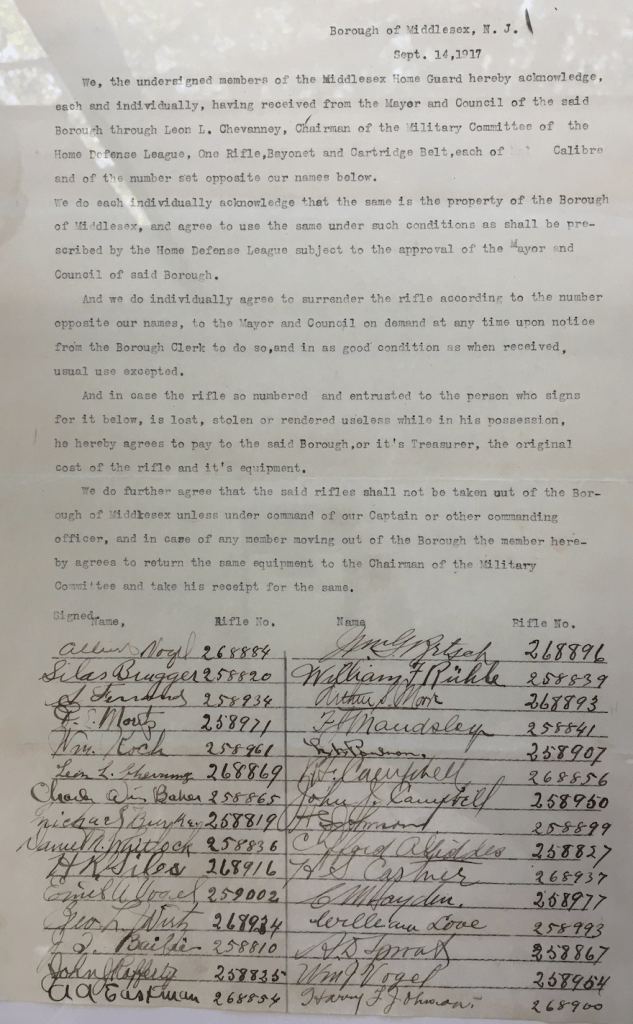 Borough of Middlesex, N. J.
Sept. 14,1917
We, the undersigned members of the Middlesex Home Guard hereby acknowledge,
each and individually, having received from the Mayor and Council of the said
Borough through Leon L. Chevanney, Chairman of the Military Committee of the
Home Defense League, One Rifle,Bayonet and Cartridge Belt,each of Calibre
and of the number set opposite our names below.
We do each individually acknowledge that the same is the property of the Borough
of Middlesex, and agree to use the same under such conditions as shall be pre-
scribed by the Home Defense League subject to the approval of the Mayor and
Council of said Borough.
And we do individually agree to surrender the rifle according to the number
opposite our names, to the Mayor and Council on demand at any time upon notice
from the Borough Clerk to do so,and in as good condition as when received,
usual use excepted.
And in case the rifle so numbered and entrusted to the person who signs
for it below, is lost, stolen or rendered useless while in his possession,
he hereby agrees to pay to the said Borough,or it's Treasurer, the original
cost of the rifle and it's equipment.
We do further agree that the said rifles shall not be taken out of the Bor-
ough of Middkesex unless under command of our Captain or other commanding
officer, and in case of any member moving out of the Borough the member here-
by agrees to return the same equipment to the Chairman of the Military
Committee and take his receipt for the same.
Signed
Name, Rifle No. Name Rifle No.
Albert Vogel 268884 268896
Silas Brugger 258820 William F Rühle 258839
258934 Arthur 268893
Moritz 258971 Maudsley 258841
Wm. Koch 258961 258907
Leon L. 268869 Campbell 268856
Charles Wm Baker 258865 John J. Campbell 258950
Michael 258819 258899
Daniel R. Mattock 258836 Clifford A Geddes 258827
H R Siles 268916 H S Castner 268937
Emil A Vogel 259002 C M Hayden. 258977
Geo L Wirtz 268924 William Love 258993
258810 H D Sproat 258867
John J Rafferty 258825 Wm J Vogel 258954
A A Eastman 268854 Harry F Johnson 268900